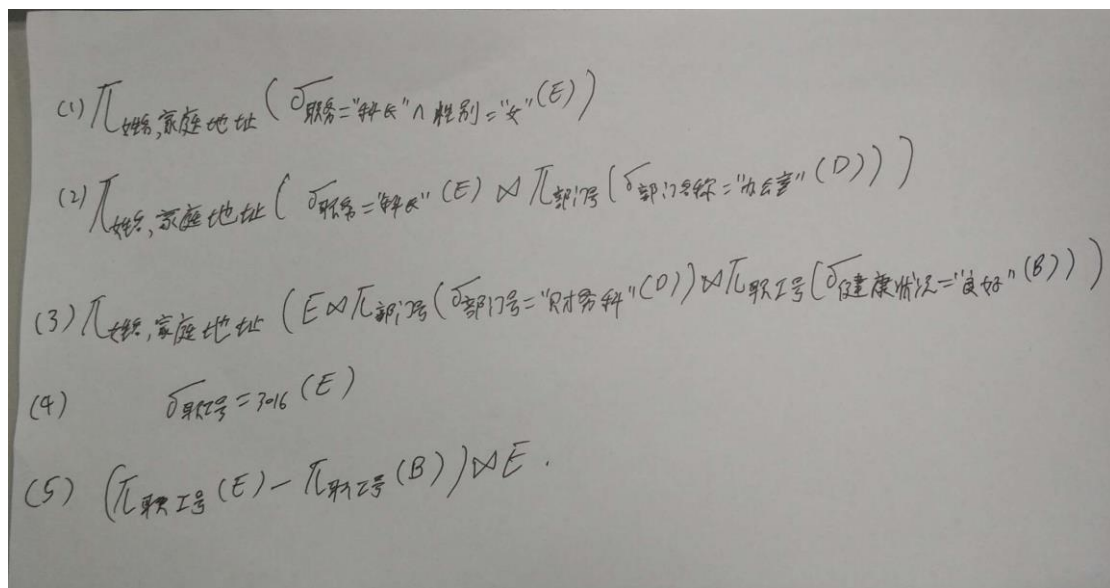 (1) π姓名,家庭地址(σ职务="科长"∩性别="女"(E))
(2) π姓名,家庭地址(σ职务="科长"(E)⋈π部门号(σ部门名称="办公室"(D)))
(3) π姓名,家庭地址(E⋈π部门号(σ部门号="财务科"(D))⋈π职工号(σ健康状况="良好"(B)))
(4) σ职工号=3016(E)
(5) (π职工号(E)-π职工号(B))⋈E.